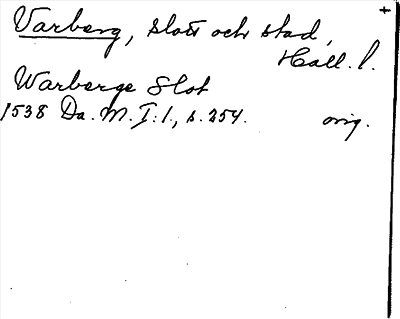 +
Varberg, slott och stad,
Hall. l.
Warberge Slot
1538 Da. M. I: 1., s. 254. orig.